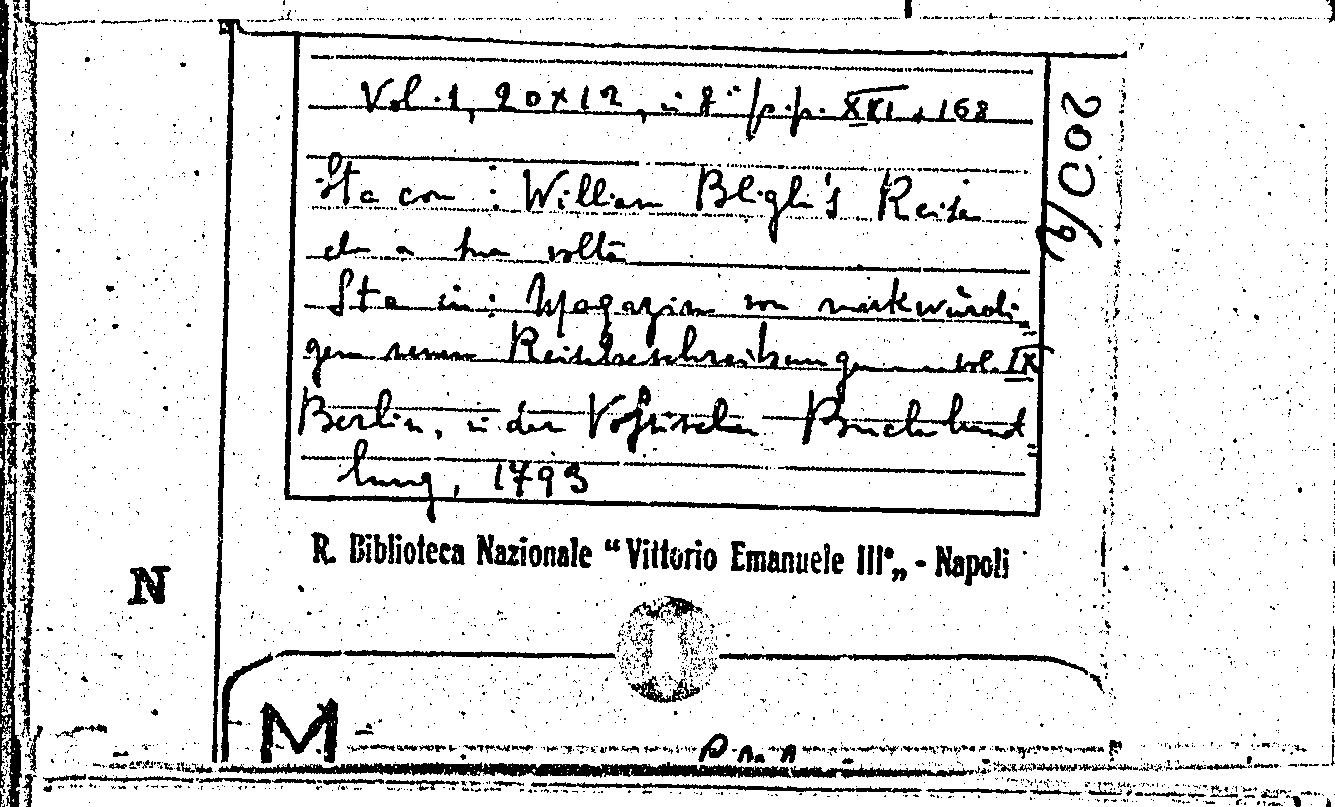 Vol. 1, 20x12, in 8° pp. XXI, 168
Sta con: William Bligh's Reise
che a sua volta
Sta in: Magazin von merkwürdi-
gen neuen Reisebeschreibungen vol. IX
Berlin, in der Voßischen Buchhand=
lung, 1793
200/92
R. Biblioteca Nazionale “Vittorio Emanuele III°„ - Napoli
N
M